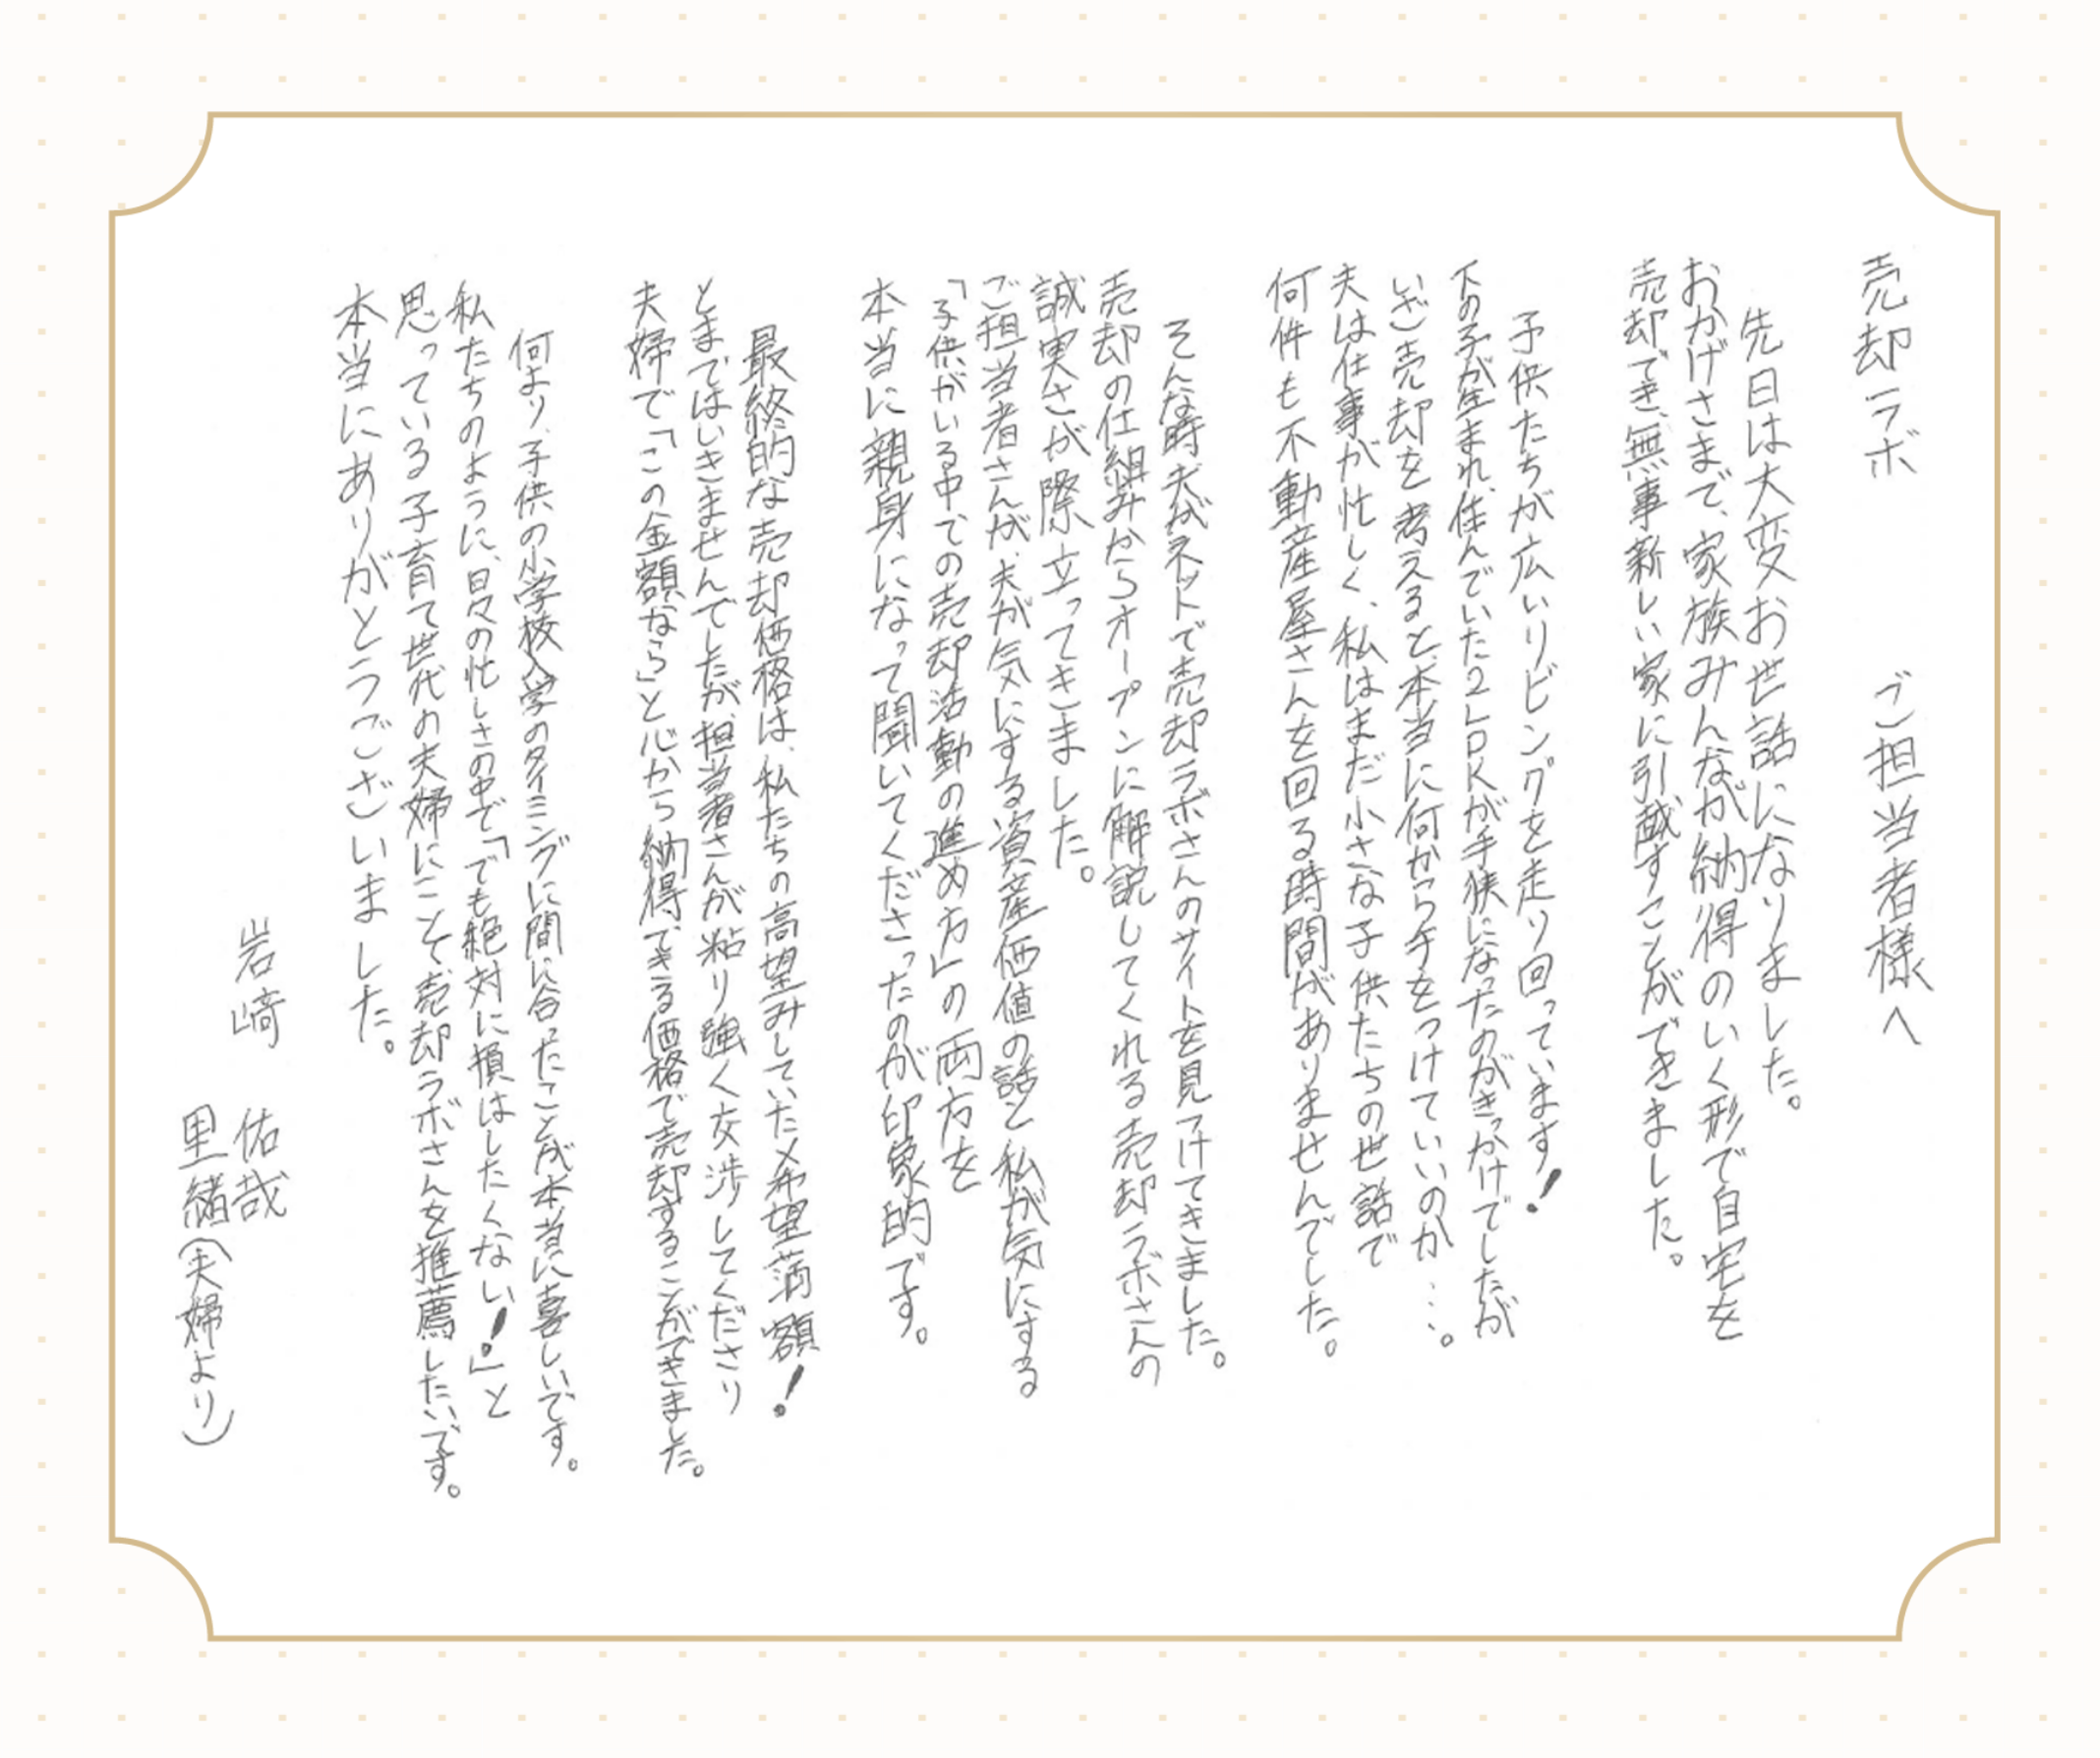 売却ラボ　ご担当者様へ
先日は大変お世話になりました。
おかげさまで、家族みんなが納得のいく形で自宅を
売却でき、無事新しい家に引越すことができました。
子供たちが広いリビングを走り回っています！
下の子が生まれ、住んでいた2LDKが手狭になったのがきっかけでしたが
いざ売却を考えると、本当に何から手をつけていいのか…。
夫は仕事が忙しく、私はまだ小さな子供たちの世話で
何件も不動産屋さんを回る時間がありませんでした。
そんな時、夫がネットで売却ラボさんのサイトを見つけてきました。
売却の仕組みからオープンに解説してくれる売却ラボさんの
誠実さが際立ってきました。
ご担当者さんが、夫が気にする資産価値の話と私が気にする
「子供がいる中での売却活動の進め方」の両方を
本当に親身になって聞いてくださったのが印象的です。
最終的な売却価格は、私たちの高望みしていた〆希望満額！
とまではいきませんでしたが、担当者さんが粘り強く交渉してくださり
夫婦で「この金額なら」と心から納得できる価格で売却することができました。
何より、子供の小学校入学のタイミングに間に合ったことが本当に喜しいです。
私たちのように、日々の忙しさの中で「でも絶対に損はしたくない！」と
思っている子育て世代の夫婦にこそ、売却ラボさんを推薦したいです。
本当にありがとうございました。
岩﨑　佑哉
里緒（夫婦より）